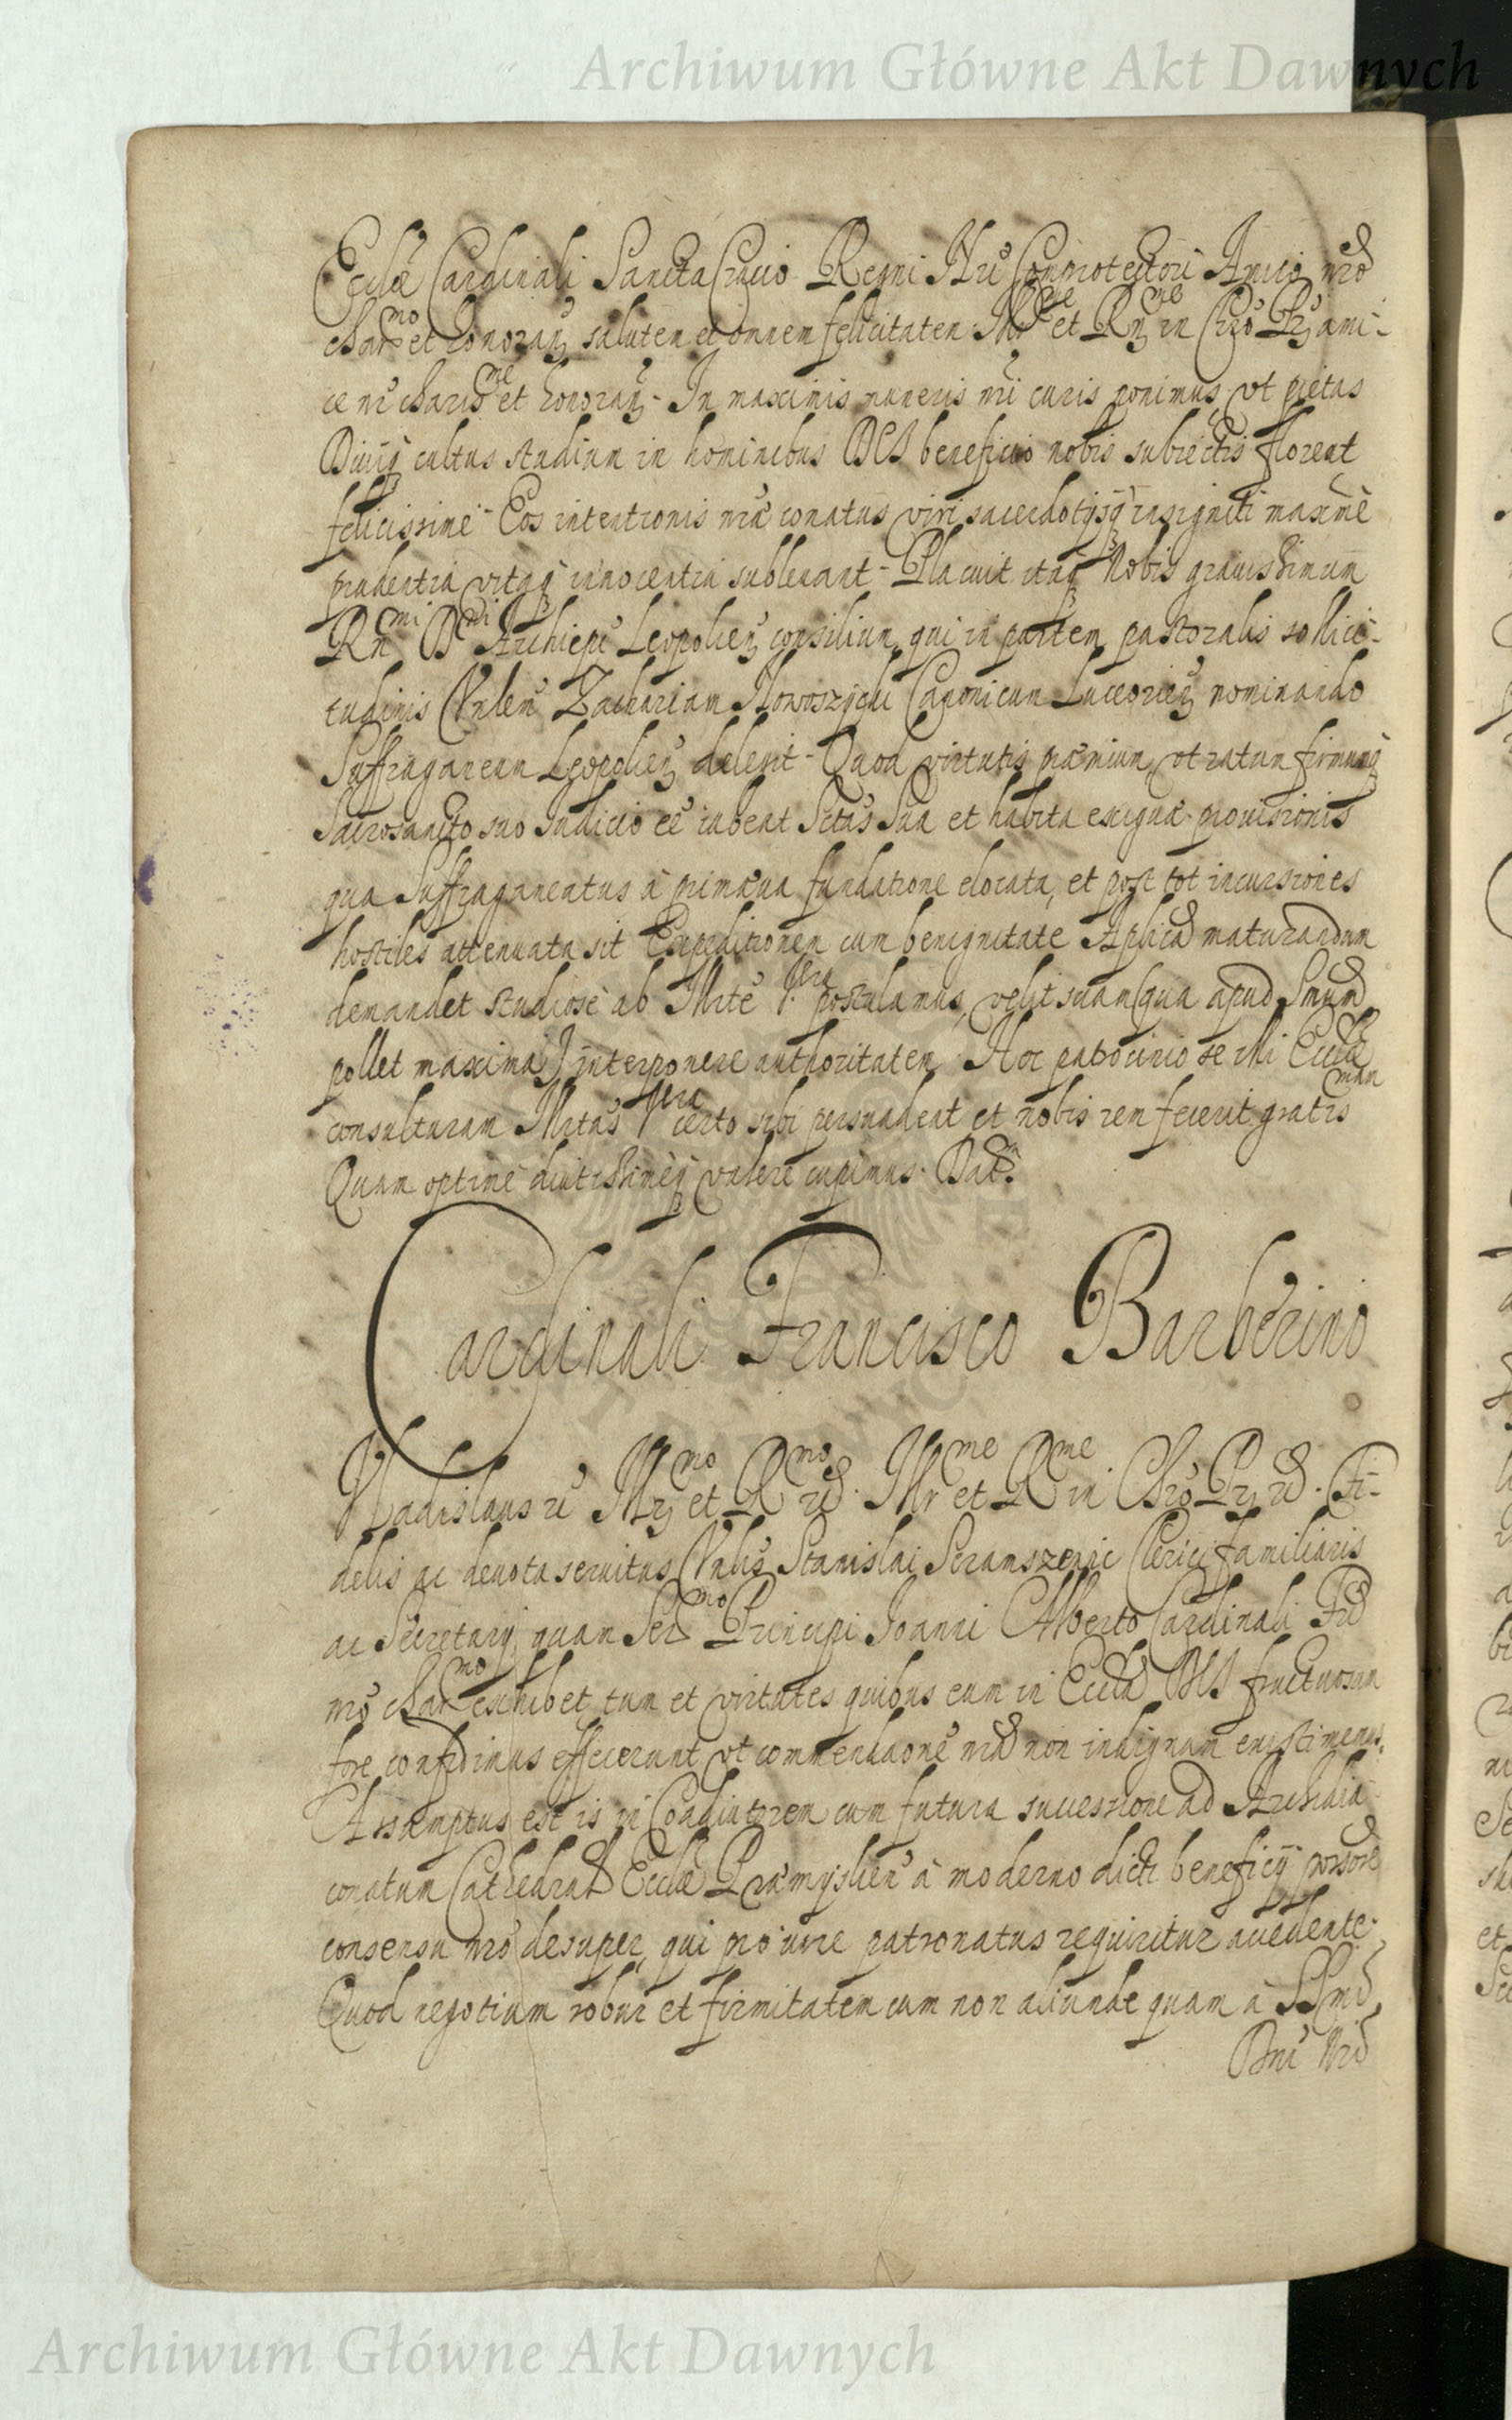 Archiwum Główne Akt Dawnych
Eccłæ Cardinali Sanctæ Crucio Regni Nri Comprotectori Amico nrõ
charmo et honoranď salutem et omnem felicitatem. Illrme et Rñme in Chrõ Pr ami-
ce nr charisme et honoranď. In maximis muneris nri curis ponimus, vt pietas
Diuiniq cultus studium in hominibus DEI beneficio nobis subiectis floreat
felicissimè. Eos intentionis nræ conatus viri sacerdotijsq insigniti maximè
prudentia vitæq innocentia subleuant. Placuit itaq Nobis grauissimum
Rñmi Dni Archiepi Leopolien consilium, qui in partem pastoralis sollici-
tudinis Vnlem Zachariam Nowoszycki Canonicum Luceorien nominando
Suffraganeum Leopolien delegit. Quod virtutis præmium vt ratum firmumq
Sacrosancto suo Iudicio ee iubeat Sctas Sua et habita exiguæ prouisionis
qua Suffraganeatus à primæua fundatione elocata, et post tot incursiones
hostiles attenuata sit Expeditionem cum benignitate Aplica maturandam
demandet studiosè ab Illrte Vra postulamus, velit suam (qua apud Smum
pollet maxima) interponere authoritatem. Hoc patrocinio se illi Ecclæ
consulturam Illrtas Vra certo sibi persuadeat et nobis rem fecerit gratissmam
Quam optime diutissimeq valere cupimus. Datm.
Cardinali Francisco Barberino
Vladislaus rc Illrmo et Rmo rd. Illrme et Rme in Chrõ Pr rd. Fi-
delis ac deuota seruitus Vnlis Stanislai Scramszewic Clerici familiaris
ac Secretarij quam Sermo Principi Ioanni Alberto Cardinali Frі
nrõ charmo exhibet, tum et virtutes quibus eum in Eccla DEI fructuosam
fore confidimus effecerunt, vt commendaone nra non indignum existimemus.
Assumptus est is in Coadiutorem cum futura successione ad Archidia-
conatum Cathedral Ecclæ Præmyslien à moderno dicti beneficij possore
consensu nrõ desuper, qui pro iure patronatus requiritur accedente.
Quod negotium robur et firmitatem cum non aliunde quam à SSmo
Dni Nri
Archiwum Główne Akt Dawnych